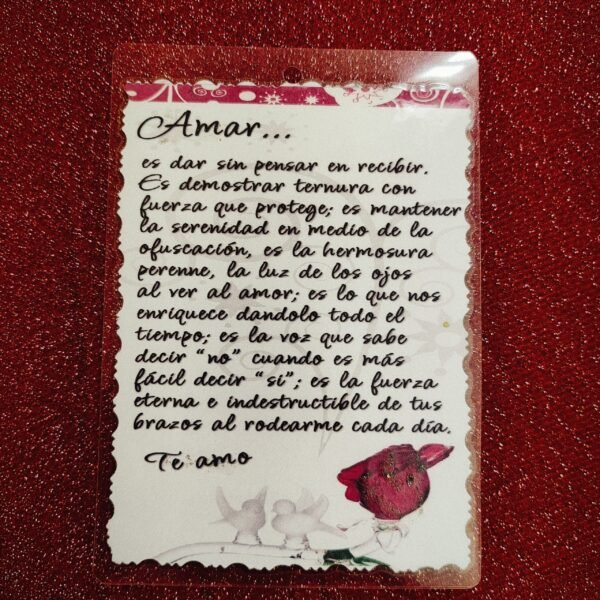 Amar...
es dar sin pensar en recibir.
Es demostrar ternura con
fuerza que protege; es mantener
la serenidad en medio de la
ofuscación, es la hermosura
perenne, la luz de los ojos
al ver al amor; es lo que nos
enriquece dandolo todo el
tiempo; es la voz que sabe
decir "no" cuando es más
fácil decir "si"; es la fuerza
eterna e indestructible de tus
brazos al rodearme cada día.
Te amo